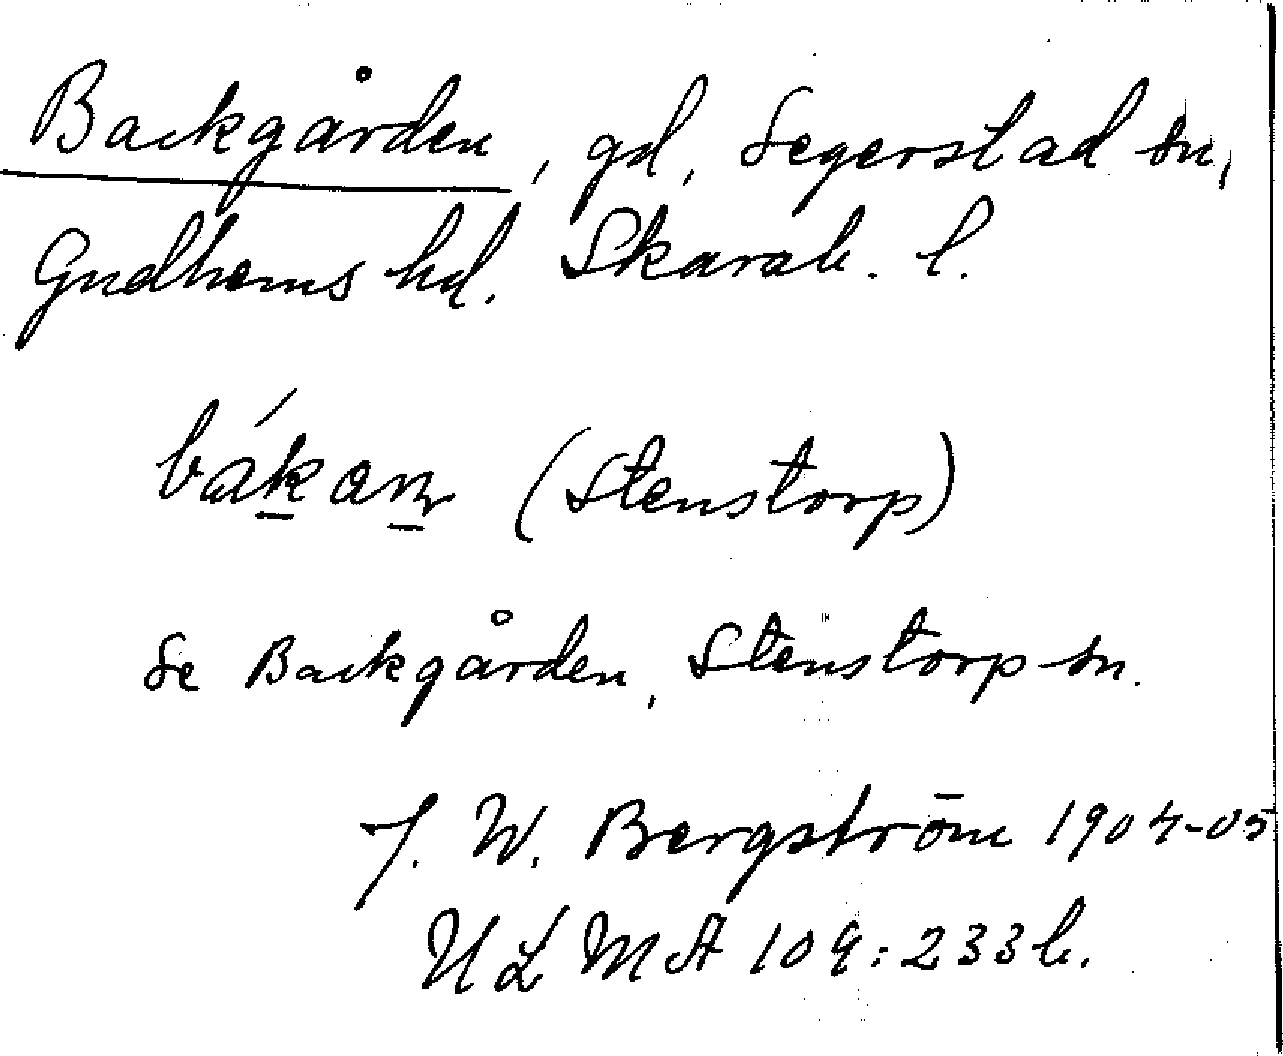 Backgården, gd, Segerstad sn,
Gudhems hd. Skarab. l.
(Stenstorp)
Se Backgården, Stenstorp sn.
J. W. Bergström 1904-05
ULMA 109:233b.